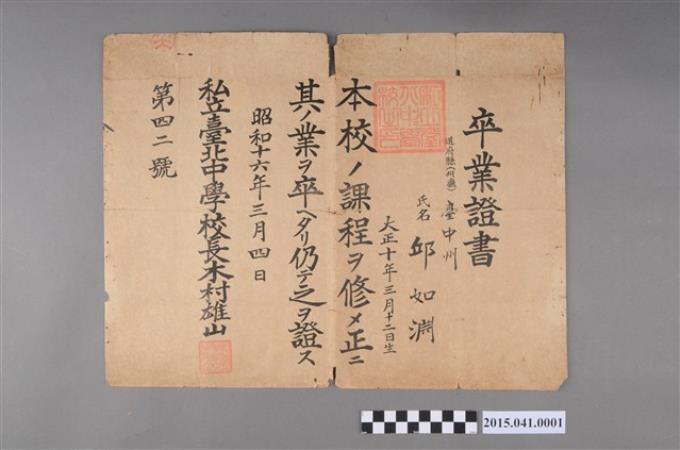 卒業證書
道府縣(州廳) 臺中州
氏名 邱如淵
大正十年三月十二日生
本校ノ課程ヲ修メ正ニ
其ノ業ヲ卒ヘタリ仍テ之ヲ證ス
昭和十六年三月四日
私立臺北中學校長木村雄山
第四二號
2015.041.0001